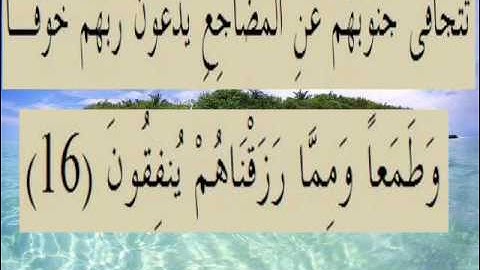 تَتَجَافَى جُنُوبُهُمْ عَنِ الْمَضَاجِعِ يَدْعُونَ رَبَّهُمْ خَوْفًا
وَطَمَعاً وَمِمَّا رَزَقْنَاهُمْ يُنفِقُونَ (16)